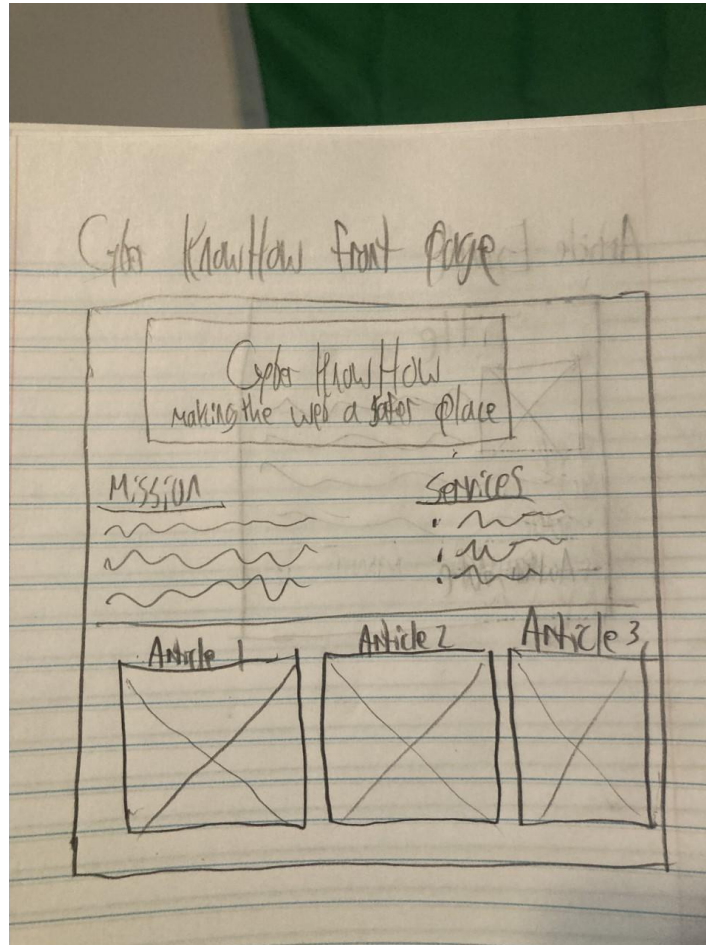 Cyber KnowHow front page
Cyber KnowHow
making the web a safer place
Mission
Services
Article 1
Article 2
Article 3